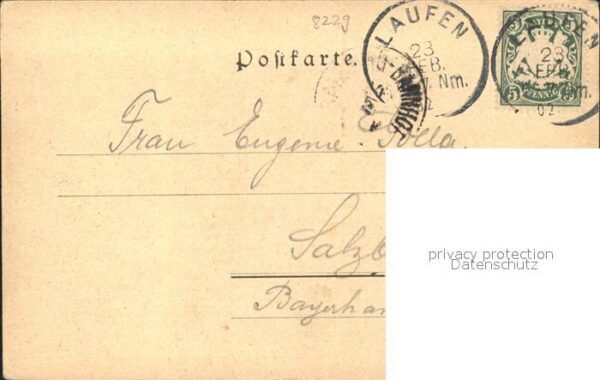 8229
LAUFEN
23
FEB.
7 Nm.
02
BAHNHOF
LAUFEN
23
FEB.
7 Nm.
02
5
5
PFENNIG
Postkarte.
Frau Eugenie
Salzb
privacy protection
Datenschutz
Bayerha